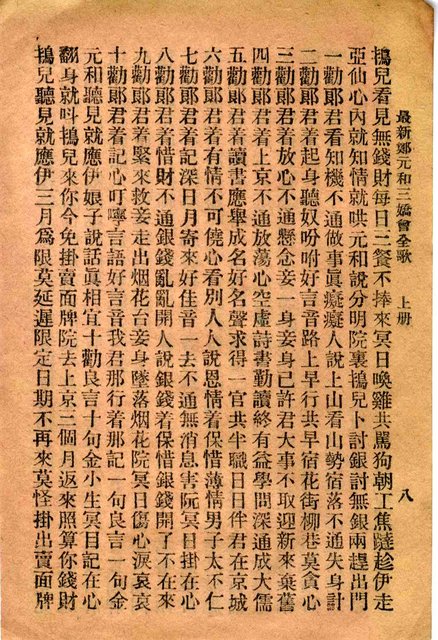 最新鄭元和三嬌會全歌　上册　八
鴇兒看見無錢財每日三餐不捧來冥日喚雞共罵狗朝工焦𨃩趁伊走
亞仙心內就知情就哄元和說分明院裏鴇兒卜討銀討無銀兩趕出門
一勸郞君看知機不通做事眞癡癡人說上山看山勢宿落不通失身計
二勸郞君着起身聽奴吩咐好言音路上早行共早宿花街柳巷莫貪心
三勸郞君着放心不通懸念妾一身妾身已許君大事不取迎新來棄舊
四勸郞君着上京不通放蕩心空虛詩書勤讀終有益學問深通成大儒
五勸郞君着讀書應舉成名好名聲求得一官共半職日日伴君在京城
六勸郞君着有情不可僥心看別人人說恩情着保惜薄情男子太不仁
七勸郞君着記深日月寄來好住音一去不通無消息害阮冥日掛在心
八勸郞君着惜財不通銀錢亂亂開人說銀錢着保惜銀錢開了不在來
九勸郞君着緊來救妾走出烟花台妾身墜落烟花院冥日傷心淚哀哀
十勸郞君着記心叮嚀言語好言音我君那行着那記一句良言一句金
元和聽見就應伊娘子說話眞相宜十勸良言十句金小生冥日記在心
翻身就叫鴇兒來你今免掛賣面牌院去上京三個月返來照算你錢財
鴇兒聽見就應伊三月爲限莫延遲限定日期不再來莫怪掛出賣面牌